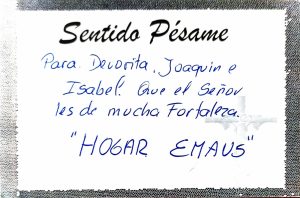 Sentido Pésame
Para Devorita, Joaquin e
Isabel. Que el Señor
les de mucha Fortaleza.
"HOGAR EMAUS"